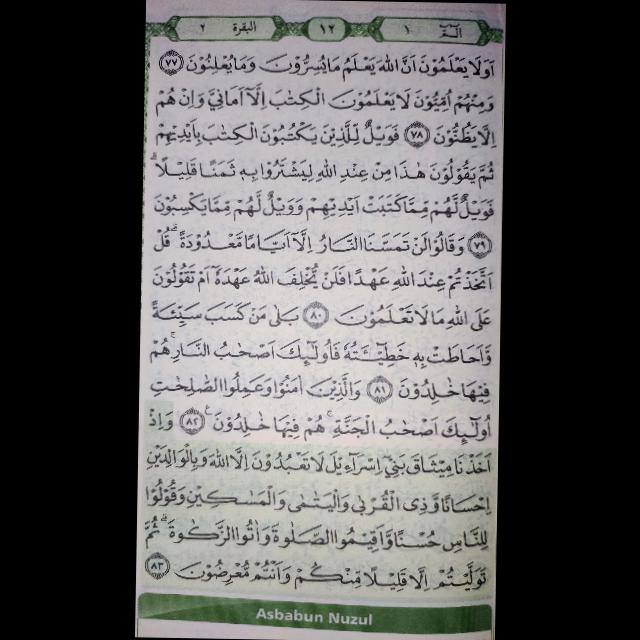 الۤمّۤ ١
١٢
البقرة ٢
اَوَلَا يَعْلَمُوْنَ اَنَّ اللّٰهَ يَعْلَمُ مَا يُسِرُّوْنَ وَمَا يُعْلِنُوْنَ ٧٧
وَمِنْهُمْ اُمِّيُّوْنَ لَا يَعْلَمُوْنَ الْكِتٰبَ اِلَّآ اَمَانِيَّ وَاِنْ هُمْ
اِلَّا يَظُنُّوْنَ ٧٨ فَوَيْلٌ لِّلَّذِيْنَ يَكْتُبُوْنَ الْكِتٰبَ بِاَيْدِيْهِمْ
ثُمَّ يَقُوْلُوْنَ هٰذَا مِنْ عِنْدِ اللّٰهِ لِيَشْتَرُوْا بِهٖ ثَمَنًا قَلِيْلًاۗ
فَوَيْلٌ لَّهُمْ مِّمَّا كَتَبَتْ اَيْدِيْهِمْ وَوَيْلٌ لَّهُمْ مِّمَّا يَكْسِبُوْنَ
٧٩ وَقَالُوْا لَنْ تَمَسَّنَا النَّارُ اِلَّآ اَيَّامًا مَّعْدُوْدَةً ۗ قُلْ
اَتَّخَذْتُمْ عِنْدَ اللّٰهِ عَهْدًا فَلَنْ يُّخْلِفَ اللّٰهُ عَهْدَهٗٓ اَمْ تَقُوْلُوْنَ
عَلَى اللّٰهِ مَا لَا تَعْلَمُوْنَ ٨٠ بَلٰى مَنْ كَسَبَ سَيِّئَةً
وَّاَحَاطَتْ بِهٖ خَطِيْۤـَٔتُهٗ فَاُولٰۤىِٕكَ اَصْحٰبُ النَّارِ ۚ هُمْ
فِيْهَا خٰلِدُوْنَ ٨١ وَالَّذِيْنَ اٰمَنُوْا وَعَمِلُوا الصّٰلِحٰتِ
اُولٰۤىِٕكَ اَصْحٰبُ الْجَنَّةِ ۚ هُمْ فِيْهَا خٰلِدُوْنَ ࣖ ٨٢ وَاِذْ
اَخَذْنَا مِيْثَاقَ بَنِيْٓ اِسْرَاۤءِيْلَ لَا تَعْبُدُوْنَ اِلَّا اللّٰهَ وَبِالْوَالِدَيْنِ
اِحْسَانًا وَّذِى الْقُرْبٰى وَالْيَتٰمٰى وَالْمَسٰكِيْنِ وَقُوْلُوْا
لِلنَّاسِ حُسْنًا وَّاَقِيْمُوا الصَّلٰوةَ وَاٰتُوا الزَّكٰوةَ ۗ ثُمَّ
تَوَلَّيْتُمْ اِلَّا قَلِيْلًا مِّنْكُمْ وَاَنْتُمْ مُّعْرِضُوْنَ ٨٣
Asbabun Nuzul